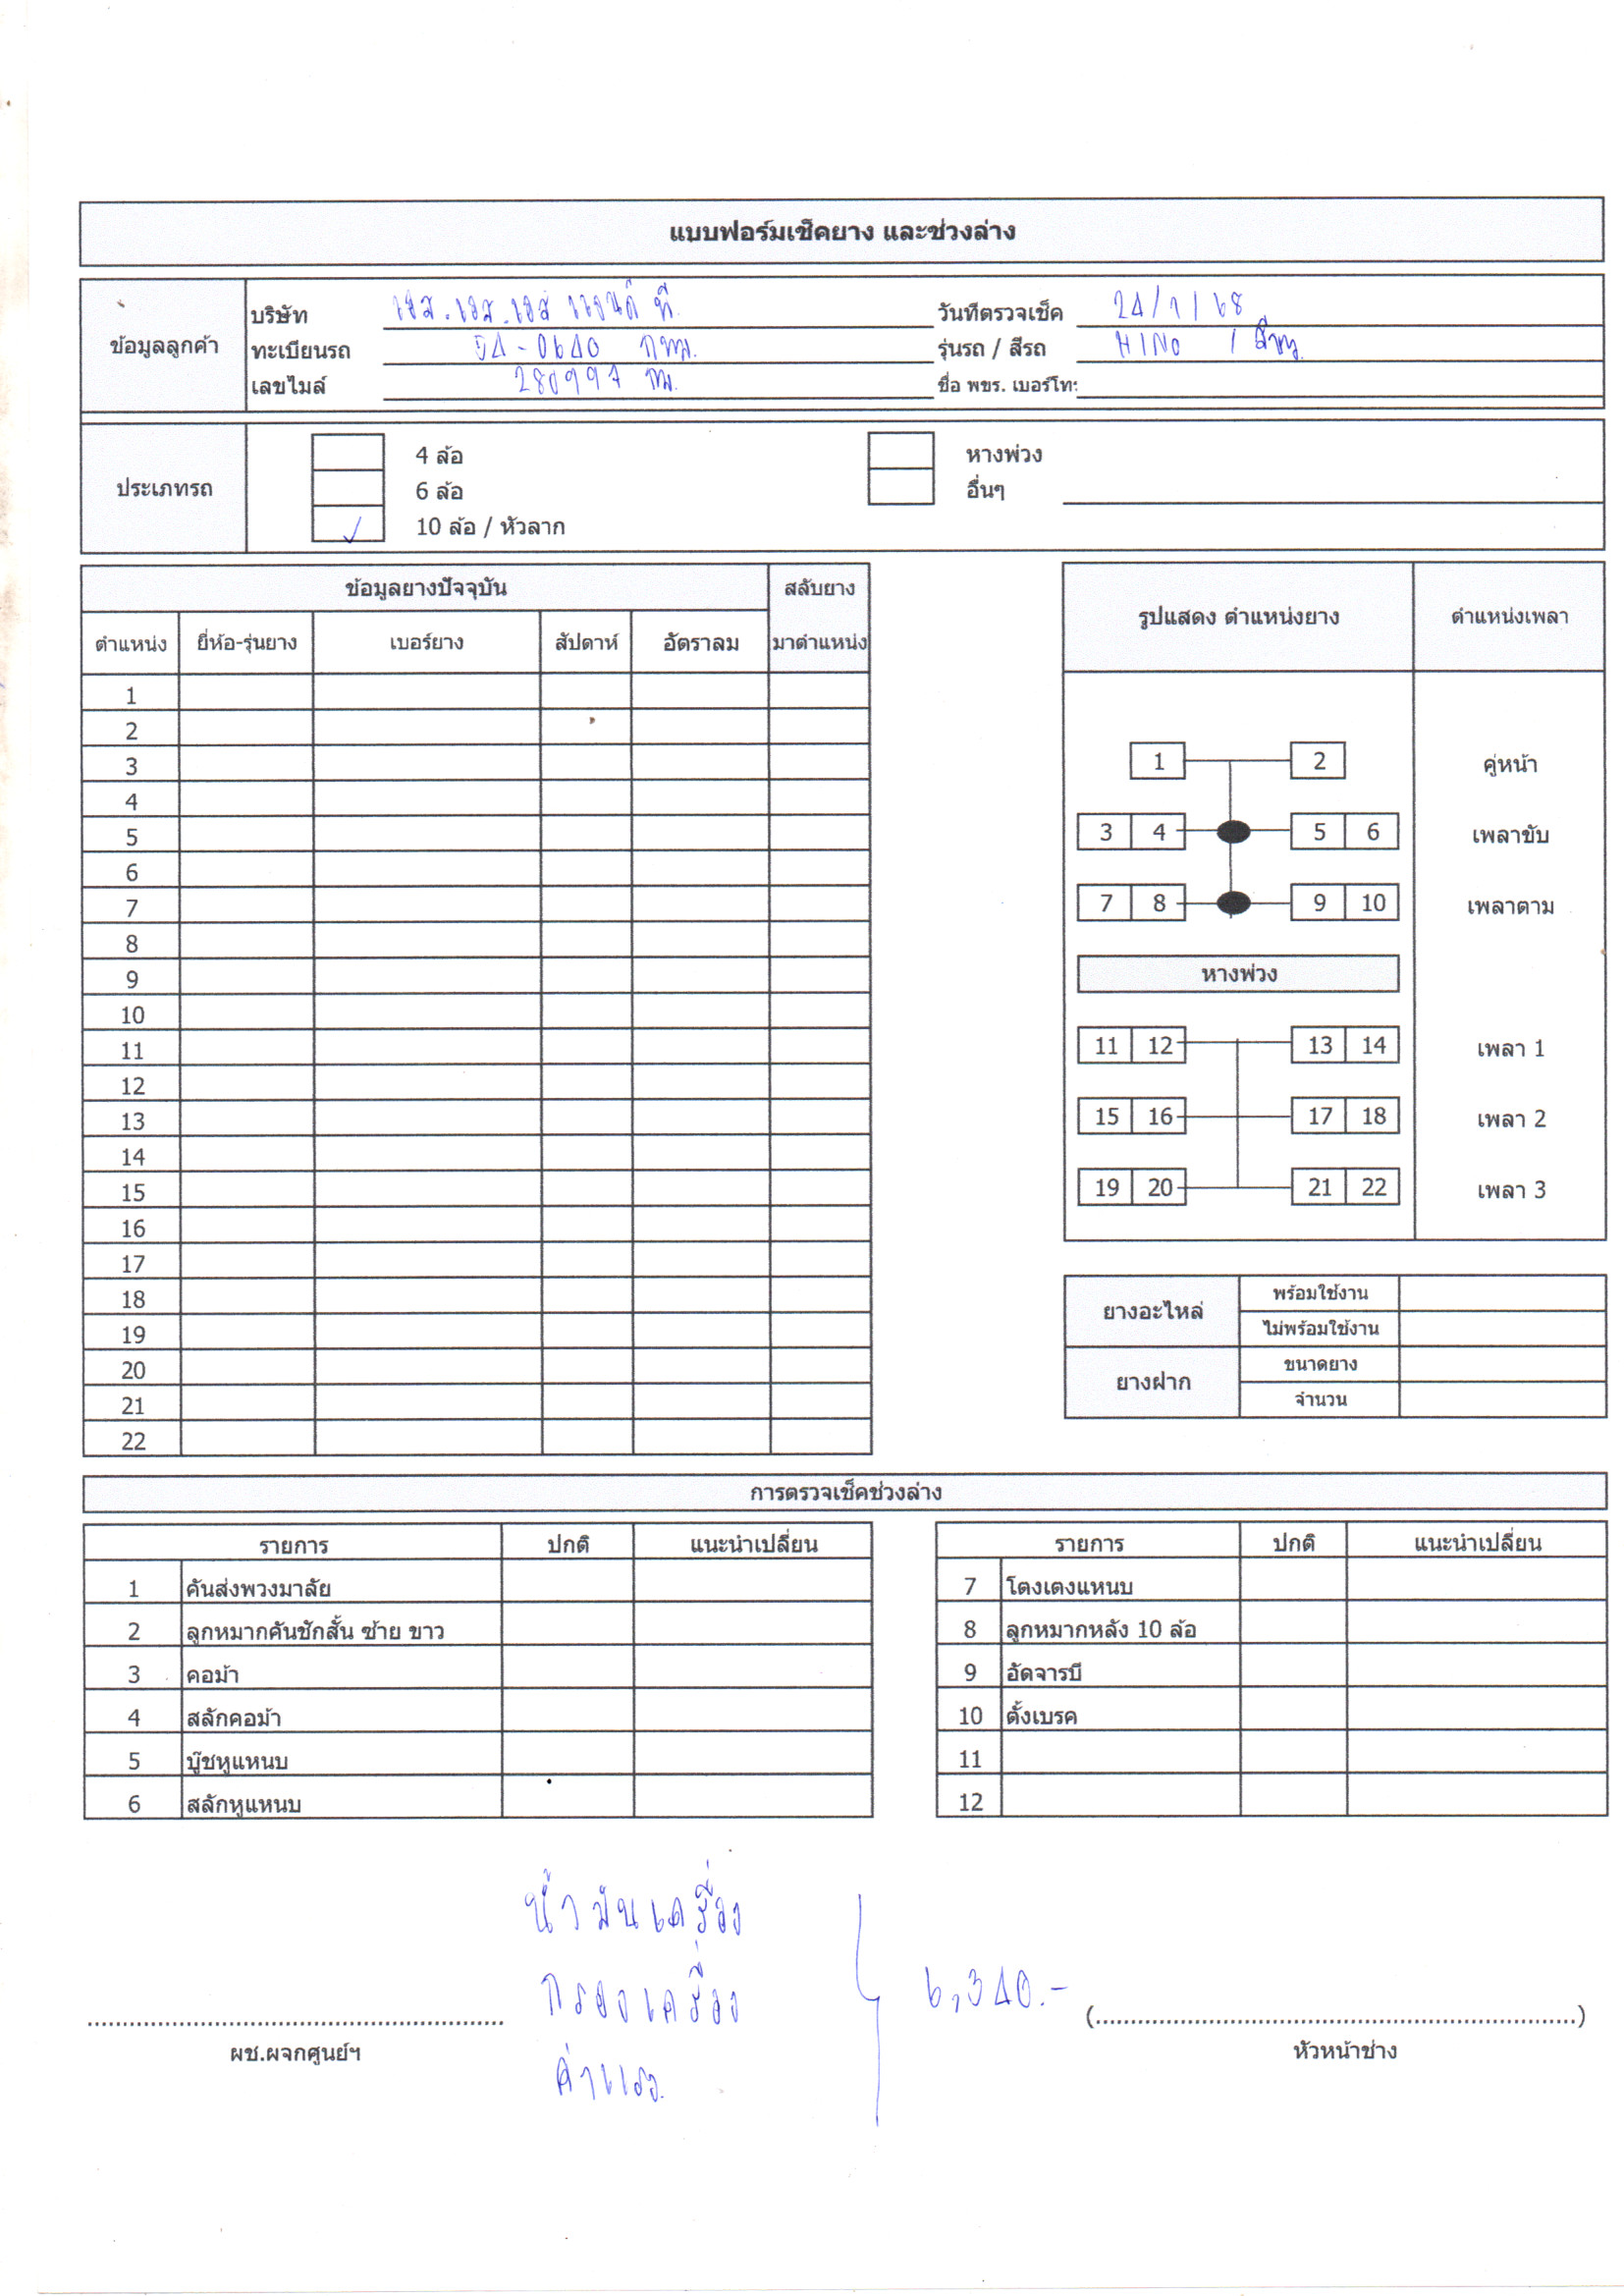 แบบฟอร์มเช็คยาง และช่วงล่าง
ข้อมูลลูกค้า
บริษัท เอส.เอส.เอส แอนด์ ที
วันที่ตรวจเช็ค 24/1/68
ทะเบียนรถ 54-0640 กทม.
รุ่นรถ / สีรถ HINO /
เลขไมล์ 280997 กม.
ชื่อ พขร. เบอร์โทร
ประเภทรถ
4 ล้อ
หางพ่วง
6 ล้อ
อื่นๆ
✓ 10 ล้อ / หัวลาก
ข้อมูลยางปัจจุบัน สลับยาง
ตำแหน่ง ยี่ห้อ-รุ่นยาง เบอร์ยาง สัปดาห์ อัตราลม มาตำแหน่ง
1
2
3
4
5
6
7
8
9
10
11
12
13
14
15
16
17
18
19
20
21
22
รูปแสดง ตำแหน่งยาง ตำแหน่งเพลา
1 2 คู่หน้า
3 4 5 6 เพลาขับ
7 8 9 10 เพลาตาม
หางพ่วง
11 12 13 14 เพลา 1
15 16 17 18 เพลา 2
19 20 21 22 เพลา 3
ยางอะไหล่ พร้อมใช้งาน
ไม่พร้อมใช้งาน
ยางฝาก ขนาดยาง
จำนวน
การตรวจเช็คช่วงล่าง
รายการ ปกติ แนะนำเปลี่ยน
1 คันส่งพวงมาลัย
2 ลูกหมากคันชักสั้น ซ้าย ขาว
3 คอม้า
4 สลักคอม้า
5 บู๊ชหูแหนบ
6 สลักหูแหนบ
รายการ ปกติ แนะนำเปลี่ยน
7 โตงเตงแหนบ
8 ลูกหมากหลัง 10 ล้อ
9 อัดจารบี
10 ตั้งเบรค
11
12
น้ำมันเครื่อง
กรองเครื่อง
ค่าแรง
6,340.-
ผช.ผจกศูนย์ฯ
(....................)
หัวหน้าช่าง